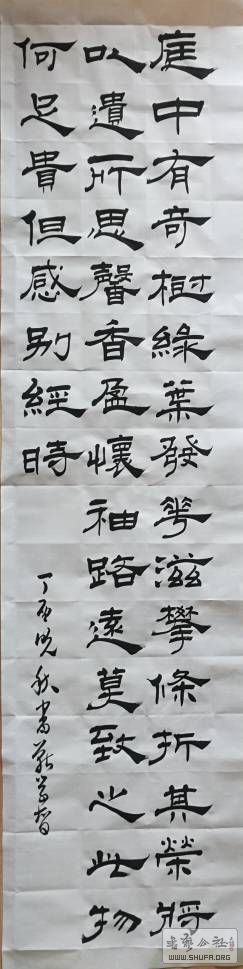 庭中有奇樹綠葉發華滋攀條折其榮將
以遺所思馨香盈懷袖路遠莫致之此物
何足貴但感別經時
丁酉晚秋書
WWW.SHUFA.ORG